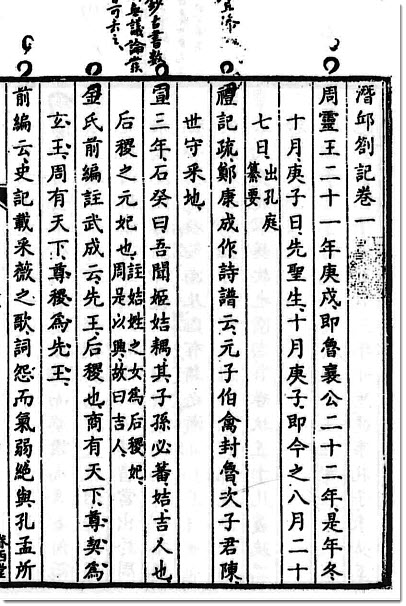 潛邱劄記卷一
周靈王二十一年庚戌即魯襄公二十二年是年冬
十月庚子日先聖生十月庚子即今之八月二十
七日出孔庭纂要
禮記疏鄭康成作詩譜云元子伯禽封魯次子君陳
世守采地
宣三年石癸曰吾聞姬姞耦其子孫必蕃姞吉人也
后稷之元妃也註姞姓之女為后稷妃周是以興故曰吉人
金氏前編註武成云先王后稷也商有天下尊契為
玄王周有天下尊稷為先王
前編云史記載采薇之歌詞怨而氣弱絕與孔孟所